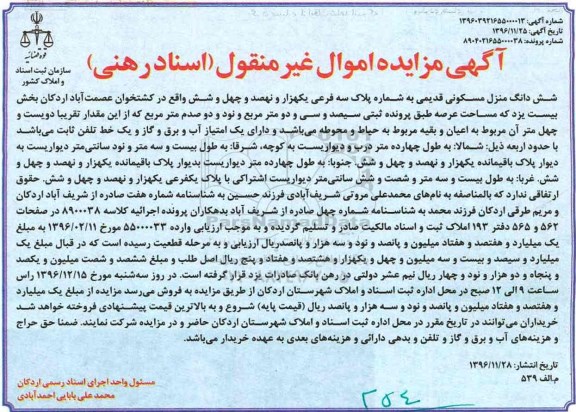 شماره آگهی: ۱۳۹۶۰۳۹۲۱۶۵۵۰۰۰۰۱۳
تاریخ آگهی: ۱۳۹۶/۱۱/۲۵
شماره پرونده: ۸۹۰۴۰۲۱۶۵۵۰۰۰۰۳۸
قوه قضائیه
سازمان ثبت اسناد
و املاک کشور
آگهی مزایده اموال غیر منقول (اسناد رهنی)
شش دانگ منزل مسکونی قدیمی به شماره پلاک سه فرعی یکهزار و نهصد و چهل و شش واقع در کشتخوان عصمت‌آباد اردکان بخش
بیست یزد که مساحت عرصه طبق پرونده ثبتی سیصد و سی و دو متر مربع و نود و دو صدم متر مربع که از این مقدار تقریبا دویست و
چهل متر آن مربوط به اعیان و بقیه مربوط به حیاط و محوطه می‌باشد و دارای یک امتیاز آب و برق و گاز و یک خط تلفن ثابت می‌باشد
با حدود اربعه ذیل: شمالا: به طول چهارده متر درب و دیواریست به کوچه، شرقا: به طول بیست و سه متر و نود سانتی‌متر دیواریست به
دیوار پلاک باقیمانده یکهزار و نهصد و چهل و شش. جنوبا: به طول چهارده متر دیواریست بدیوار پلاک باقیمانده یکهزار و نهصد و چهل و
شش. غربا: به طول بیست و سه متر و شصت و شش سانتی‌متر دیواریست اشتراکی با پلاک یکفرعی یکهزار و نهصد و چهل و شش. حقوق
ارتفاقی ندارد که بالمناصفه به نام‌های محمدعلی مروتی شریف‌آبادی فرزند حسین به شناسنامه شماره هفت صادره از شریف آباد اردکان
و مریم طرقی اردکان فرزند محمد به شناسنامه شماره چهل صادره از شریف آباد بدهکاران پرونده اجرائیه کلاسه ۸۹۰۰۰۳۸ در صفحات
۵۶۲ و ۵۶۵ دفتر ۱۹۳ املاک ثبت و اسناد مالکیت صادر و تسلیم گردیده و به موجب ارزیابی وارده ۵۵۰۰۰۰۳۳ مورخ ۱۳۹۶/۰۲/۱۱ به مبلغ
یک میلیارد و هفتصد و هفتاد میلیون و پانصد و نود و سه هزار و پانصد ریال ارزیابی و به مرحله قطعیت رسیده است که در قبال مبلغ یک
میلیارد و سیصد و بیست و سه میلیون و چهل و یکهزار و هشتصد و هفتاد و پنج ریال اصل طلب و مبلغ ششصد و شصت میلیون و یکصد
و پنجاه و دو هزار و نود و چهار ریال نیم عشر دولتی در رهن بانک صادرات یزد قرار گرفته است. در روز سه‌شنبه مورخ ۱۳۹۶/۱۲/۱۵ راس
ساعت ۹ الی ۱۲ صبح در محل اداره ثبت اسناد و املاک شهرستان اردکان از طریق مزایده به فروش می‌رسد مزایده از مبلغ یک میلیارد
و هفتصد و هفتاد میلیون و پانصد و نود و سه هزار و پانصد ریال (قیمت پایه) شروع و به بالاترین قیمت پیشنهادی فروخته خواهد شد
خریداران می‌توانند در تاریخ مقرر در محل اداره ثبت اسناد و املاک شهرستان اردکان حاضر و در مزایده شرکت نمایند. ضمنا حق حراج
و هزینه‌های آب و برق و گاز و تلفن و بدهی دارائی و هزینه‌های بعدی به عهده خریدار می‌باشد.
تاریخ انتشار: ۱۳۹۶/۱۱/۲۸
م.الف ۵۳۹
مسئول واحد اجرای اسناد رسمی اردکان
محمد علی بابایی احمدآبادی